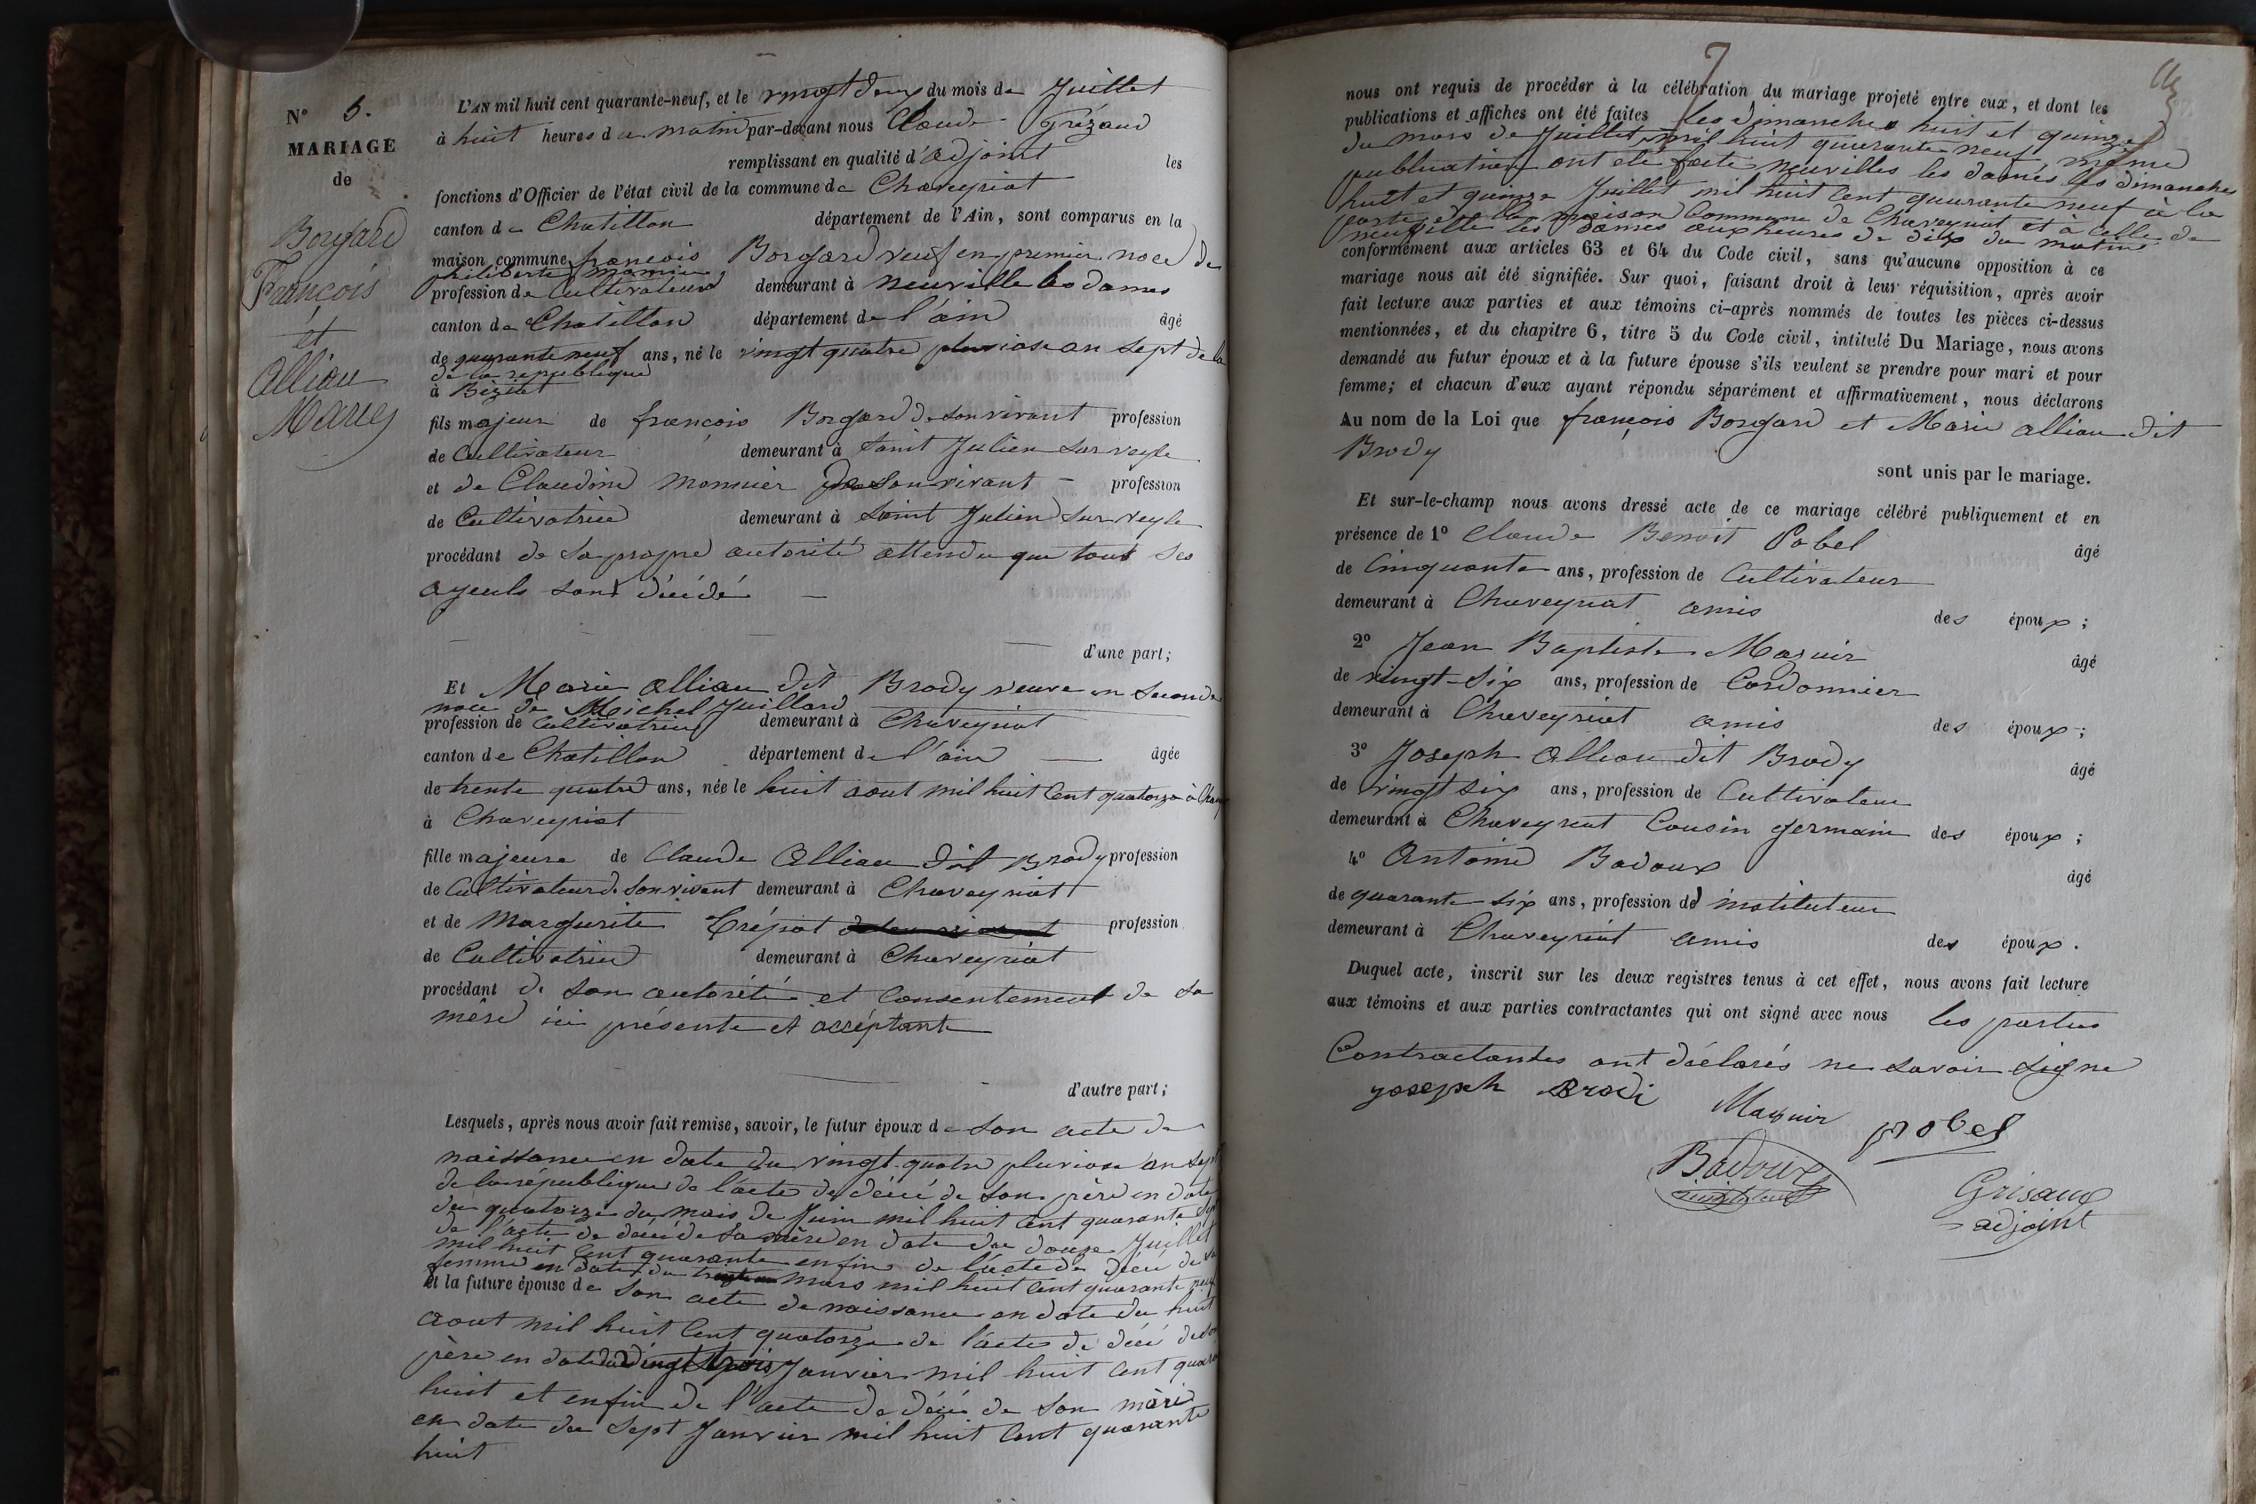 N° 5.
MARIAGE
de
Borgard
François
et
Alliau
Marie
L'AN mil huit cent quarante-neuf, et le vingt deux du mois de Juillet
à huit heures du matin par-devant nous Claude Grézaud
remplissant en qualité d'adjoint les
fonctions d'Officier de l'état civil de la commune de Chaveyriat
canton de Chatillon département de l'Ain, sont comparus en la
maison commune françois Borgard veuf en premier noce de
philiberte mamin
profession de Cultivateur demeurant à neuville les dames
canton de Chatillon département de l'ain âgé
de quarante neuf ans, né le vingt quatre pluviose an sept de la
de la republique
à Béziat
fils majeur de françois Borgard de son vivant profession
de Cultivateur demeurant à saint Julien sur veyle
et de Claudine Monnier de son vivant profession
de Cultivatrice demeurant à saint Julien sur veyle
procédant de sa propre autorité attendu que tout ses
ayeuls sont décédé
d'une part;
Et Marie Alliau dit Brody veuve en seconde
noce de Michel Juillard
profession de Cultivatrice demeurant à Chaveyriat
canton de Chatillon département de l'ain âgée
de trente quatre ans, née le huit aout mil huit cent quatorze à
à Chaveyriat
fille majeure de Claude Alliau dit Brody profession
de Cultivateur de son vivant demeurant à Chaveyriat
et de Margurite Crépiat profession
de Cultivatrice demeurant à Chaveyriat
procédant de son autorité et consentement de sa
mère ici présente et accéptante
d'autre part;
Lesquels, après nous avoir fait remise, savoir, le futur époux de son acte de
naissance en date du vingt-quatre pluviose an sept
de la république de l'acte de décé de son père en date
du quatorze du mois de Juin mil huit cent quarante sept
de l'acte de décé de sa mère en date du douze Juillet
mil huit cent quarante enfin de l'acte de décé de sa
femme en date du mars mil huit cent quarante neuf
Et la future épouse de son acte de naissance en date du huit
aout mil huit cent quatorze de l'acte de décé de son
père en date du vingt trois Janvier mil huit cent quarante
huit et enfin de l'acte de décé de son mari
en date du sept Janvier mil huit cent quarante
huit
7
nous ont requis de procéder à la célébration du mariage projeté entre eux, et dont les
publications et affiches ont été faites les dimanches huit et quinze
du mois de Juillet mil huit quarante neuf même
publication ont été faite neuvilles les dames les dimanches
huit et quinze Juillet mil huit cent quarante neuf à la
porte de la maison commune de Chaveyriat et à celle de
neuville les dames aux heures de dix du matin
conformément aux articles 63 et 64 du Code civil, sans qu'aucune opposition à ce
mariage nous ait été signifiée. Sur quoi, faisant droit à leur réquisition, après avoir
fait lecture aux parties et aux témoins ci-après nommés de toutes les pièces ci-dessus
mentionnées, et du chapitre 6, titre 5 du Code civil, intitulé Du Mariage, nous avons
demandé au futur époux et à la future épouse s'ils veulent se prendre pour mari et pour
femme; et chacun d'eux ayant répondu séparément et affirmativement, nous déclarons
Au nom de la Loi que françois Borgard et Marie alliau dit
Brody
sont unis par le mariage.
Et sur-le-champ nous avons dressé acte de ce mariage célébré publiquement et en
présence de 1° Claude Benoit Pobel âgé
de Cinquante ans, profession de Cultivateur
demeurant à Chaveyriat amis des époux;
2° Jean Baptiste Maguir âgé
de vingt-six ans, profession de Cordonnier
demeurant à Chaveyriat amis des époux;
3° Joseph Alliau dit Brody âgé
de vingt six ans, profession de Cultivateur
demeurant à Chaveyriat Cousin germain des époux;
4° Antoine Badoux âgé
de quarante-six ans, profession de instituteur
demeurant à Chaveyriat amis des époux.
Duquel acte, inscrit sur les deux registres tenus à cet effet, nous avons fait lecture
aux témoins et aux parties contractantes qui ont signé avec nous les parties
Contractantes ont déclarés ne savoir signe
joseph Brodi Maguir pobel
Badoux
instituteur
Grisaud
adjoint